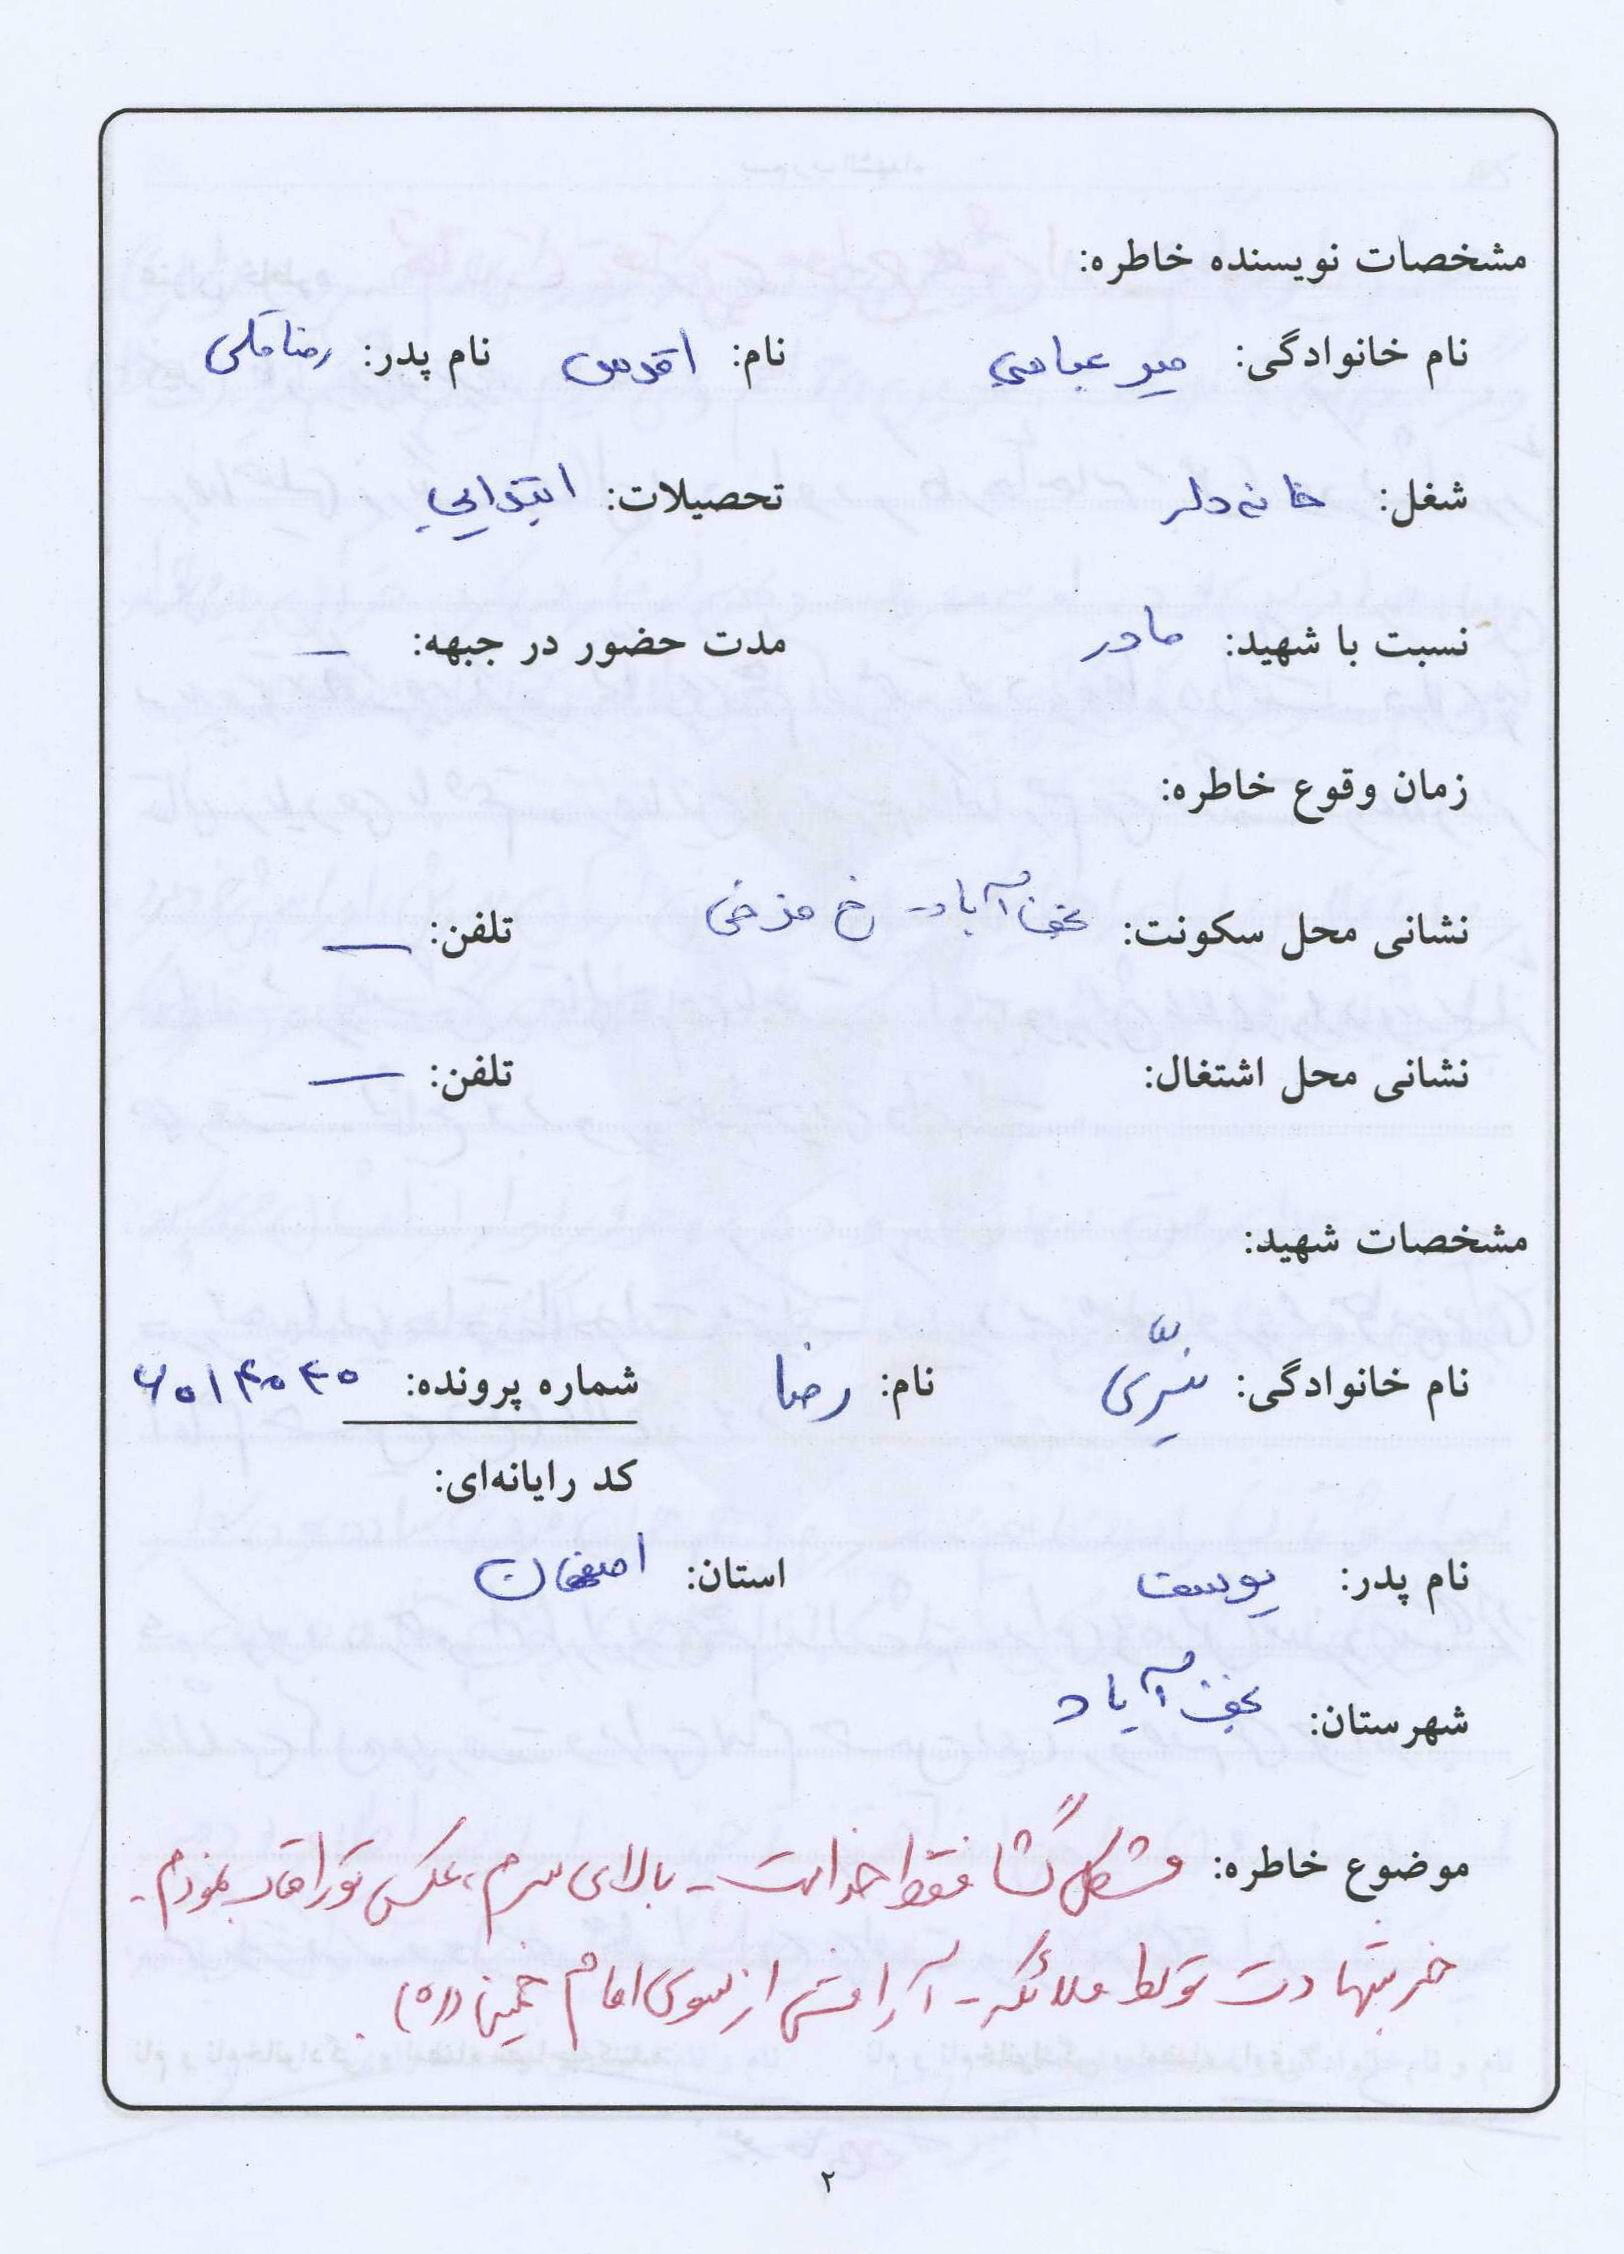 مشخصات نویسنده خاطره:
نام خانوادگی: میر عباسی نام: اقدس نام پدر: رضاقلی
شغل: خانه دار تحصیلات: ابتدایی
نسبت با شهید: مادر مدت حضور در جبهه: —
زمان وقوع خاطره:
نشانی محل سکونت: نجف آباد - خ تلفن: —
نشانی محل اشتغال: تلفن: —
مشخصات شهید:
نام خانوادگی: نام: رضا شماره پرونده: ۶۰۱۴۰۴۰
کد رایانه‌ای:
نام پدر: یوسف استان: اصفهان
شهرستان: نجف آباد
موضوع خاطره: مشکل گشا فقط خداست - بالای سرم، عکس تو را قاب نمودم -
خبر شهادت توسط ملائکه - آرامش از سوی امام خمینی (ره).
۲